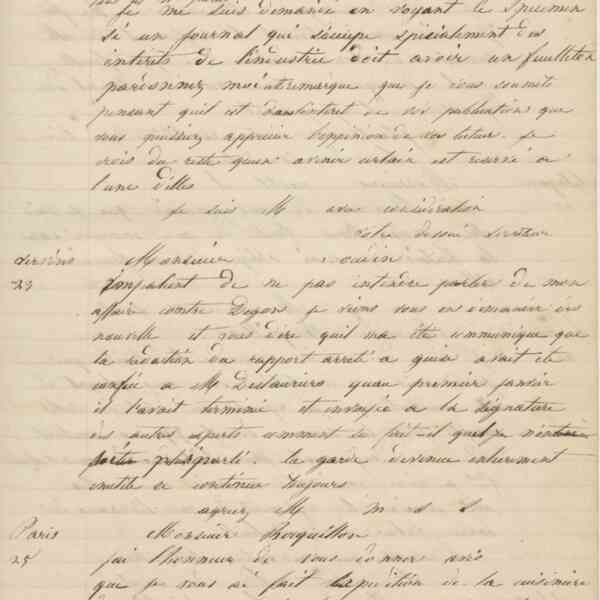 je me suis demandé en voyant le specimen
si un journal qui socuipe spésialement des
interits de l'industrie doit avoir un feuilleton
pardonnez moi cette remarque que je vous soumets
pensant quil est dans l'intiret de vos publication que
vous puissiez apprecier l'oppinion de vos lecteur. je
crois du reste quun avenir certain est reservé a
l'une d'elles
je suis M avec considération
votre dévoué serviteur
Monsieur
23 impatient de ne pas intendre parler de mon
affaire contre je viens vous en demander des
nouvelle et vous dire quil ma été communiqué que
la rédaction du rapport arreté a avait été
confié a M Deslauriers quau premier janvier
il l'avait terminé et envoyée a la signature
des autres experts comment se fait-il que je
parlé. la garde devenue entierement
inutile se continue toujours
agreez M m s S
Paris Monsieur Rouquillon
25 j'ai l'honneur de vous donner avis
que je vous ai fait l'expédition de la cuisiniere